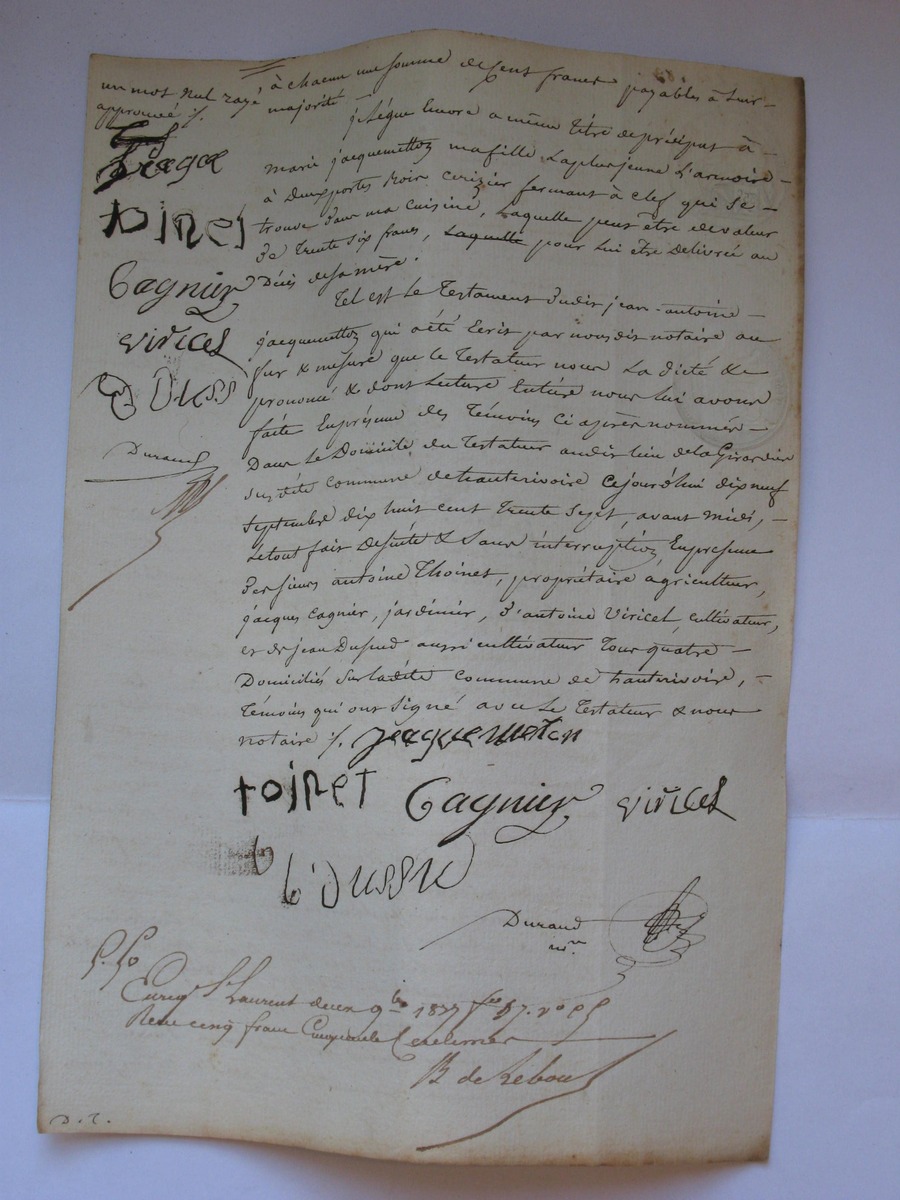 à chacun une somme de cent francs payables à leur
majorité
un mot nul rayé
approuvé ./.
jacque
toinet
Gagnier
viricel
Dussu
Durand
je lègue encore a même titre de préciput à
marie jacquemetton ma fille la plus jeune l'armoire
à deux portes bois cerizier fermant à clef qui se
trouve dans ma cuisine, laquelle peut être de valeur
de trente six francs, laquelle pour lui être délivrée au
Décès de sa mère.
Tel est le Testament dudit jean-antoine
jacquemetton qui a été Ecrit par nous dit notaire au
fur & mesure que le Testateur nous la dicté &
prononcé & dont lecture Entière nous lui avons
faite En présence des Témoins Ci après nommés
Dans le Domicile du Testateur audit lieu de la Girardière
susdite commune de hauterivoire Cejourd'hui dix neuf
Septembre dix huit cent trente Sept, avant midi,
Le tout fait de suite & Sans interruption En présence
des sieurs antoine Thoinet, propriétaire agriculteur,
jacques Gagnier, jardinier, d'antoine Viricel, cultivateur,
et de jean Dussud aussi cultivateur Tous quatre
Domiciliés Sur ladite commune de hauterivoire,
Témoins qui ont Signé avec le Testateur & nous
notaire ./. jacquemeton
toinet Gagnier viricel
Dussu
Durand
nre.
5.50
Enreg. St Laurent deux 9bre 1837 fo 57. vo
Reçu cinq francs Cinquante Centimes
D. T.